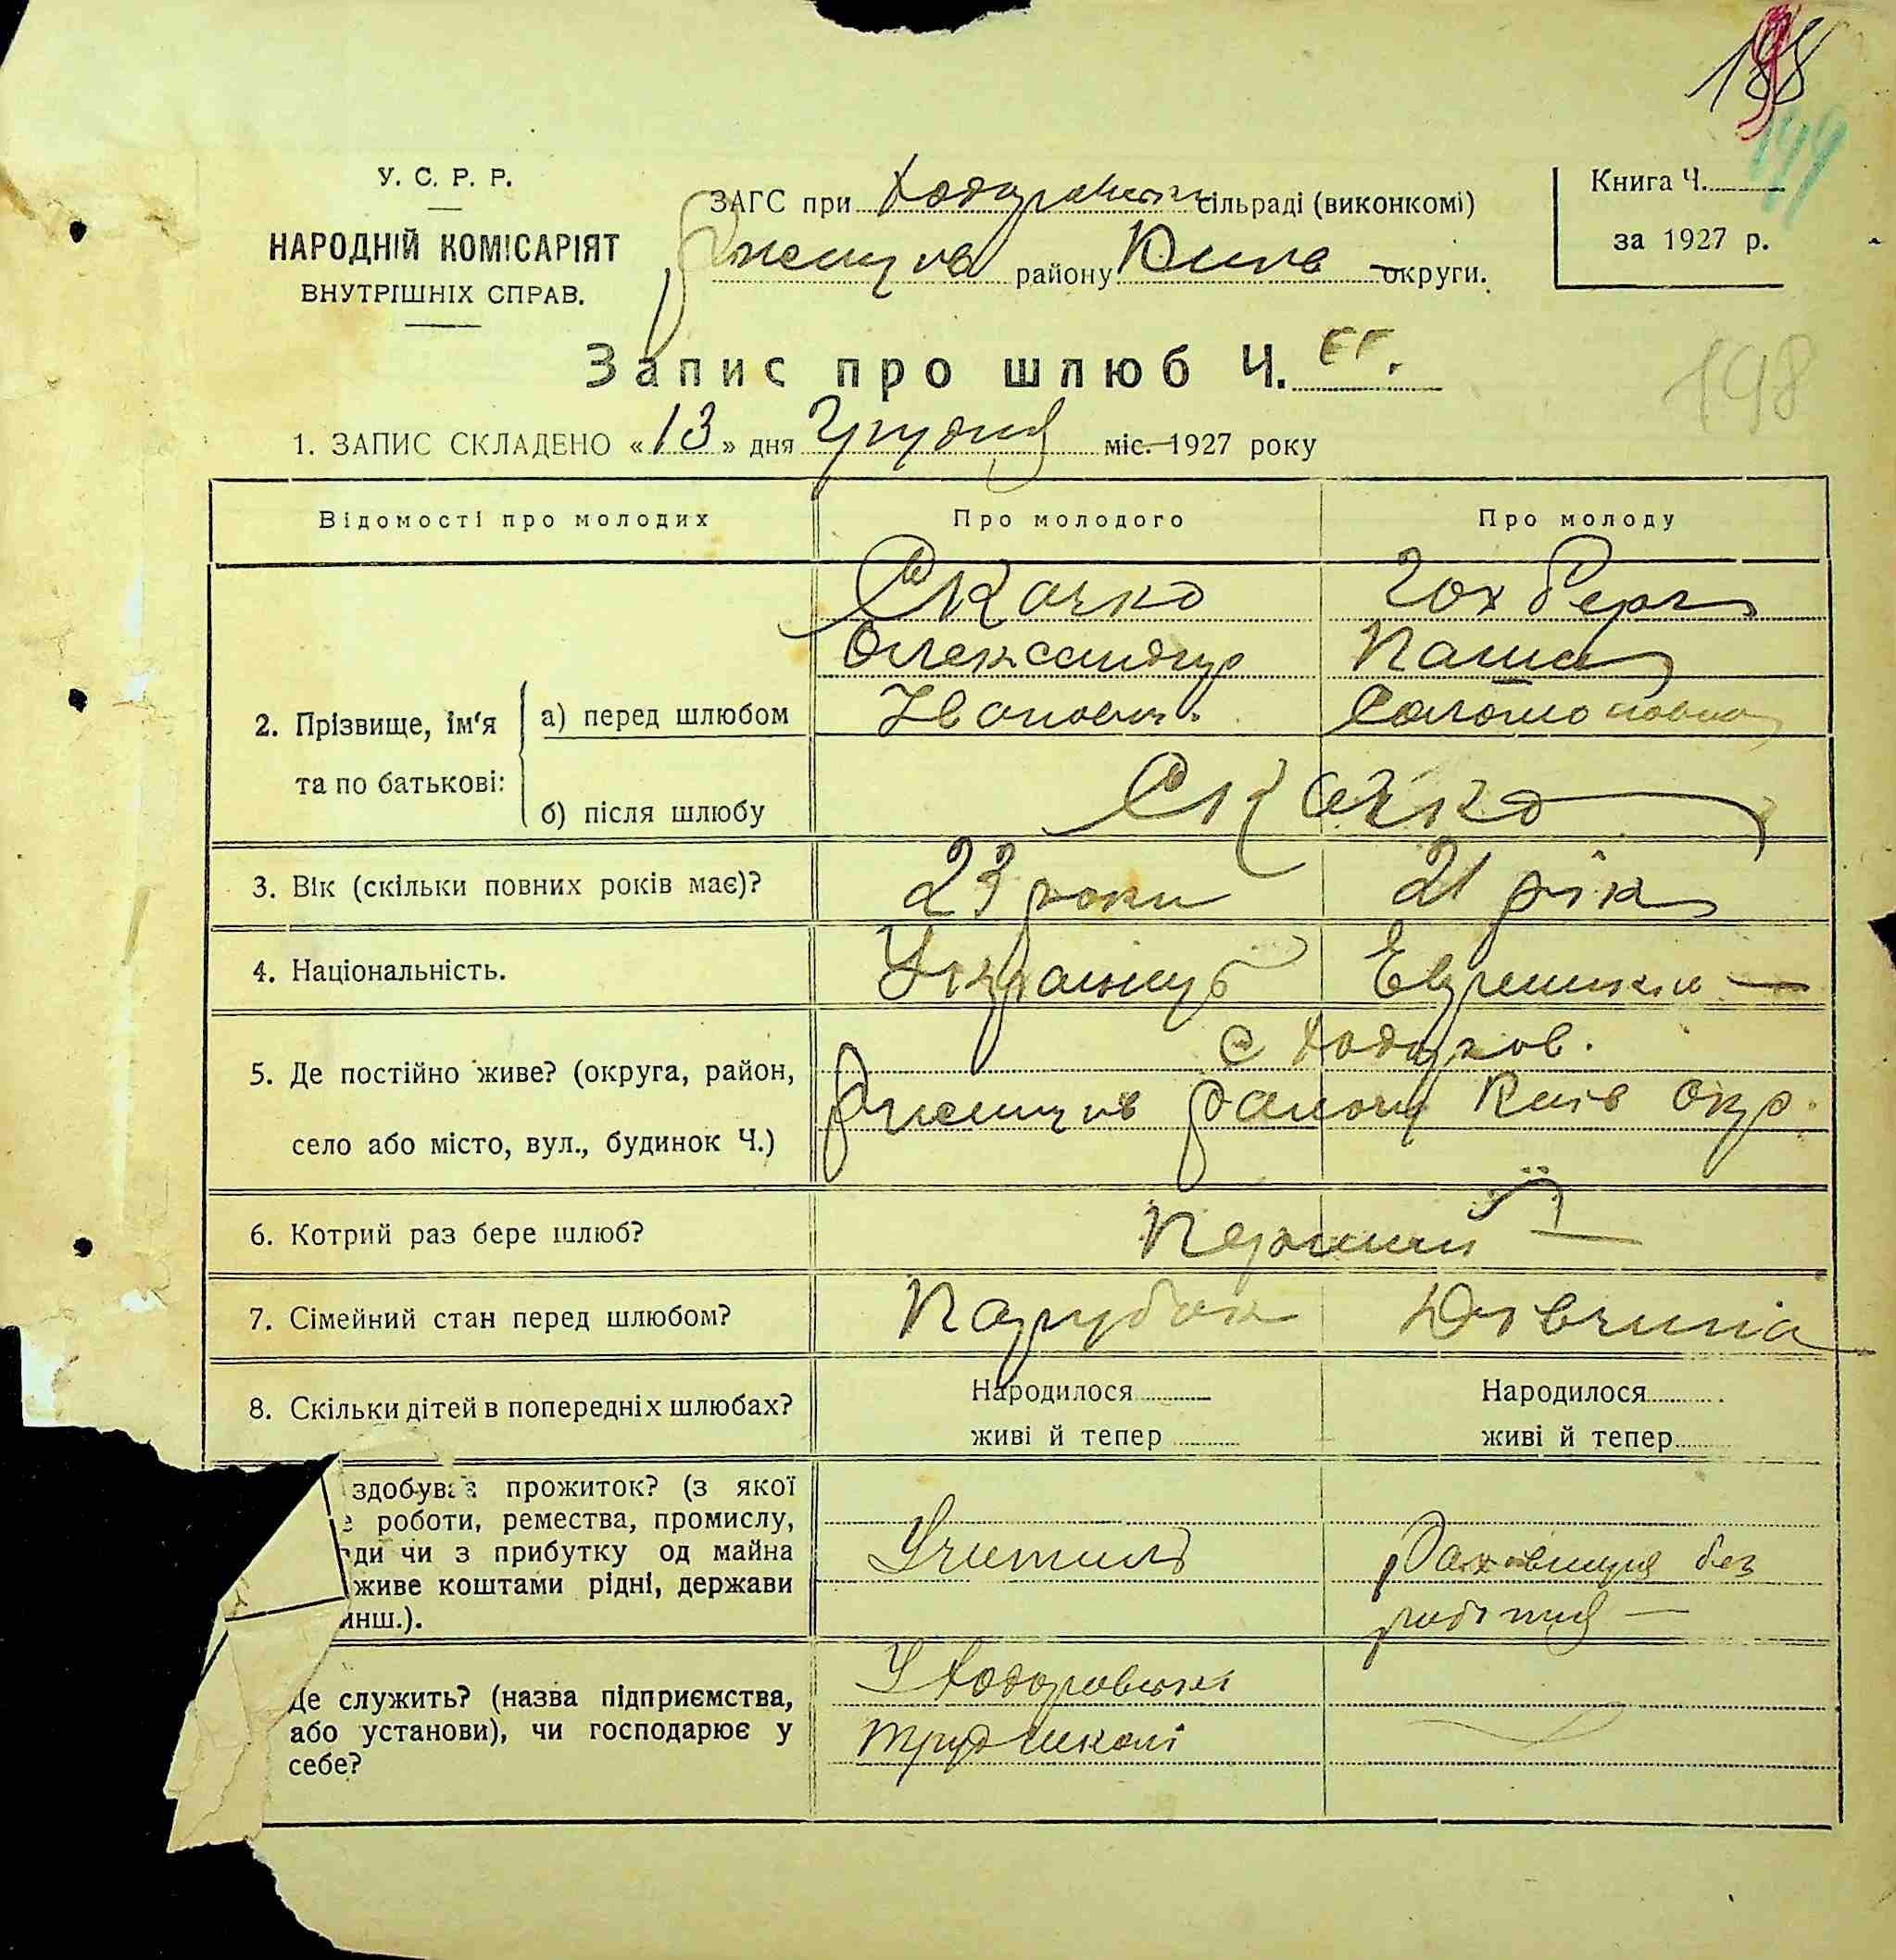 198
199
У. С. Р. Р.
НАРОДНІЙ КОМІСАРІЯТ
ВНУТРІШНІХ СПРАВ.
ЗАГС при Ходорівськ сільраді (виконкомі)
Ржищів району Київ округи.
Книга Ч.
за 1927 р.
Запис про шлюб Ч.
198
1. ЗАПИС СКЛАДЕНО «13» дня Грудня міс. 1927 року
Відомості про молодих Про молодого Про молоду
Скачко Гохберг
Олександер Паша
2. Прізвище, ім'я та по батькові: а) перед шлюбом Іванович Соломоновна
б) після шлюбу Скачко
3. Вік (скільки повних років має)? 23 роки 21 рік
4. Національність. Українець Еврейка
5. Де постійно живе? (округа, район, с Ходоров.
село або місто, вул., будинок Ч.) Ржищів району Київ окр.
6. Котрий раз бере шлюб? Перший
7. Сімейний стан перед шлюбом? Парубок Дівчина
8. Скільки дітей в попередніх шлюбах? Народилося Народилося
живі й тепер живі й тепер
здобував прожиток? (з якої
роботи, ремества, промислу,
ди чи з прибутку од майна Учитель Рахівниця без
живе коштами рідні, держави
инш.). робіття
Де служить? (назва підприємства, У Ходоровські
або установи), чи господарює у трудшколі
себе?